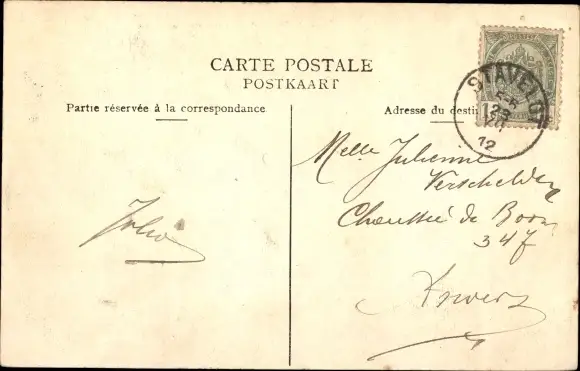 CARTE POSTALE
POSTKAART
Partie réservée à la correspondance
Adresse du desti
STAVELOT
23
12
Melle Julienne
Verschelden
Chaussée de Boom
347
Anvers